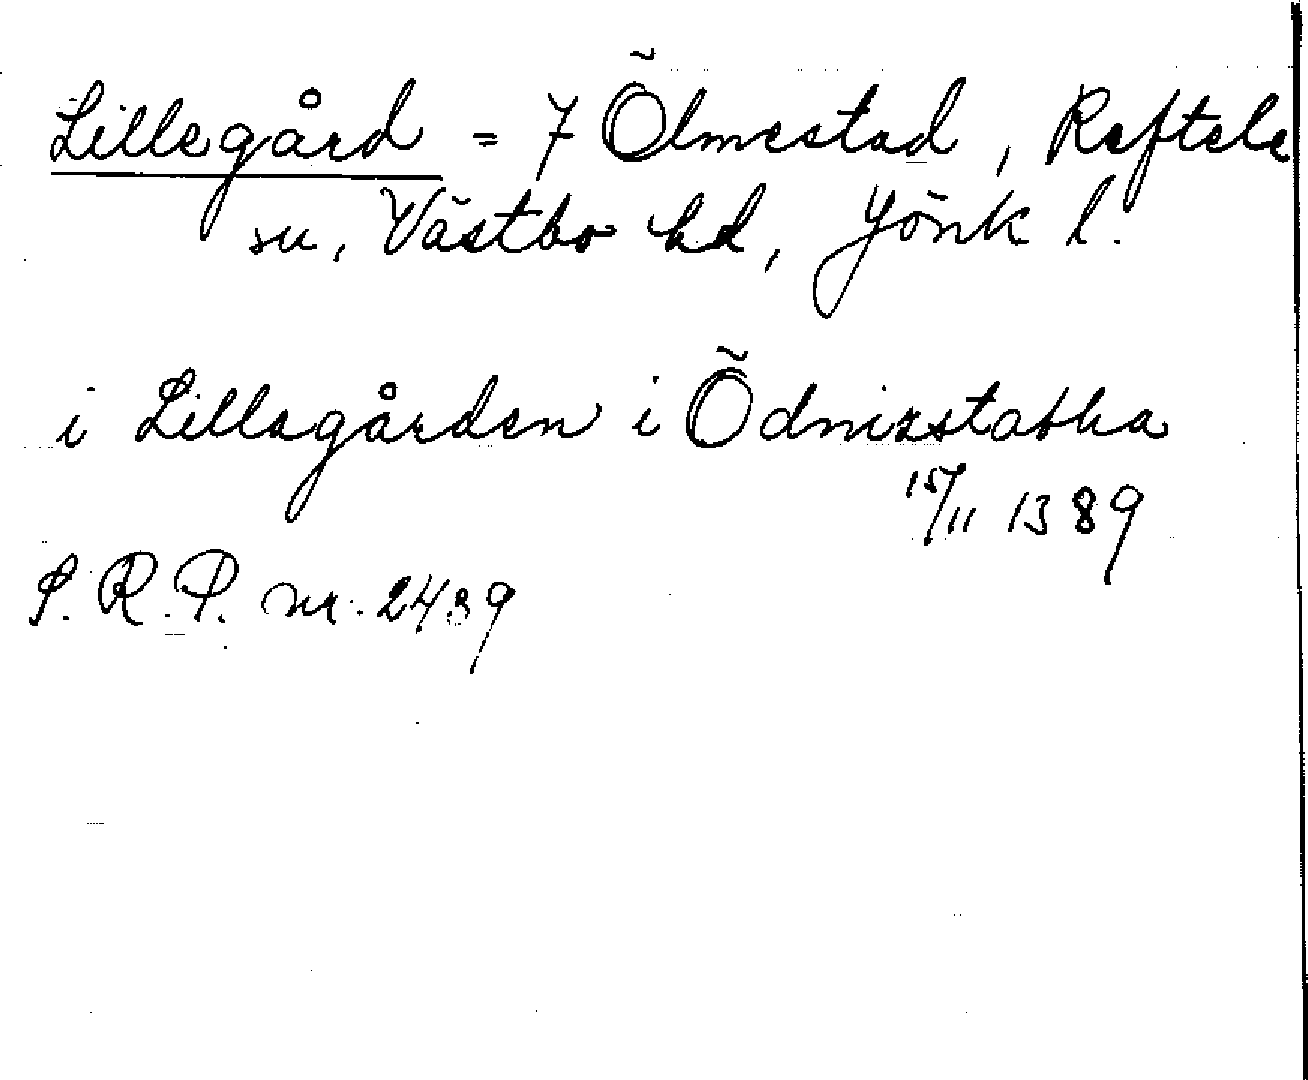 Lillegård = 7 Ölmestad, Reftele
sn, Västbo hd, Jönk l.
i Lillegården i Ödnizstatha
15/11 1389
S. R. P. nr. 2439